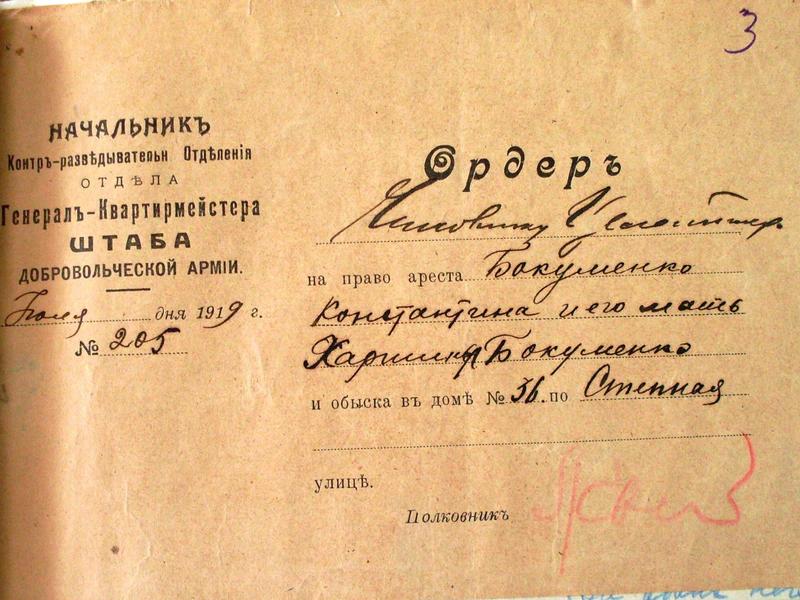 3
НАЧАЛЬНИКЪ
Контръ-развѣдывательн Отдѣленія
ОТДѢЛА
Генералъ-Квартирмейстера
ШТАБА
ДОБРОВОЛЬЧЕСКОЙ АРМІИ.
дня 1919 г.
№ 205
Ордеръ
Чиновнику
на право ареста Бокуменко
Константина и его мать
Бокуменко
и обыска въ домѣ № 36. по Степная
улицѣ.
Полковникъ